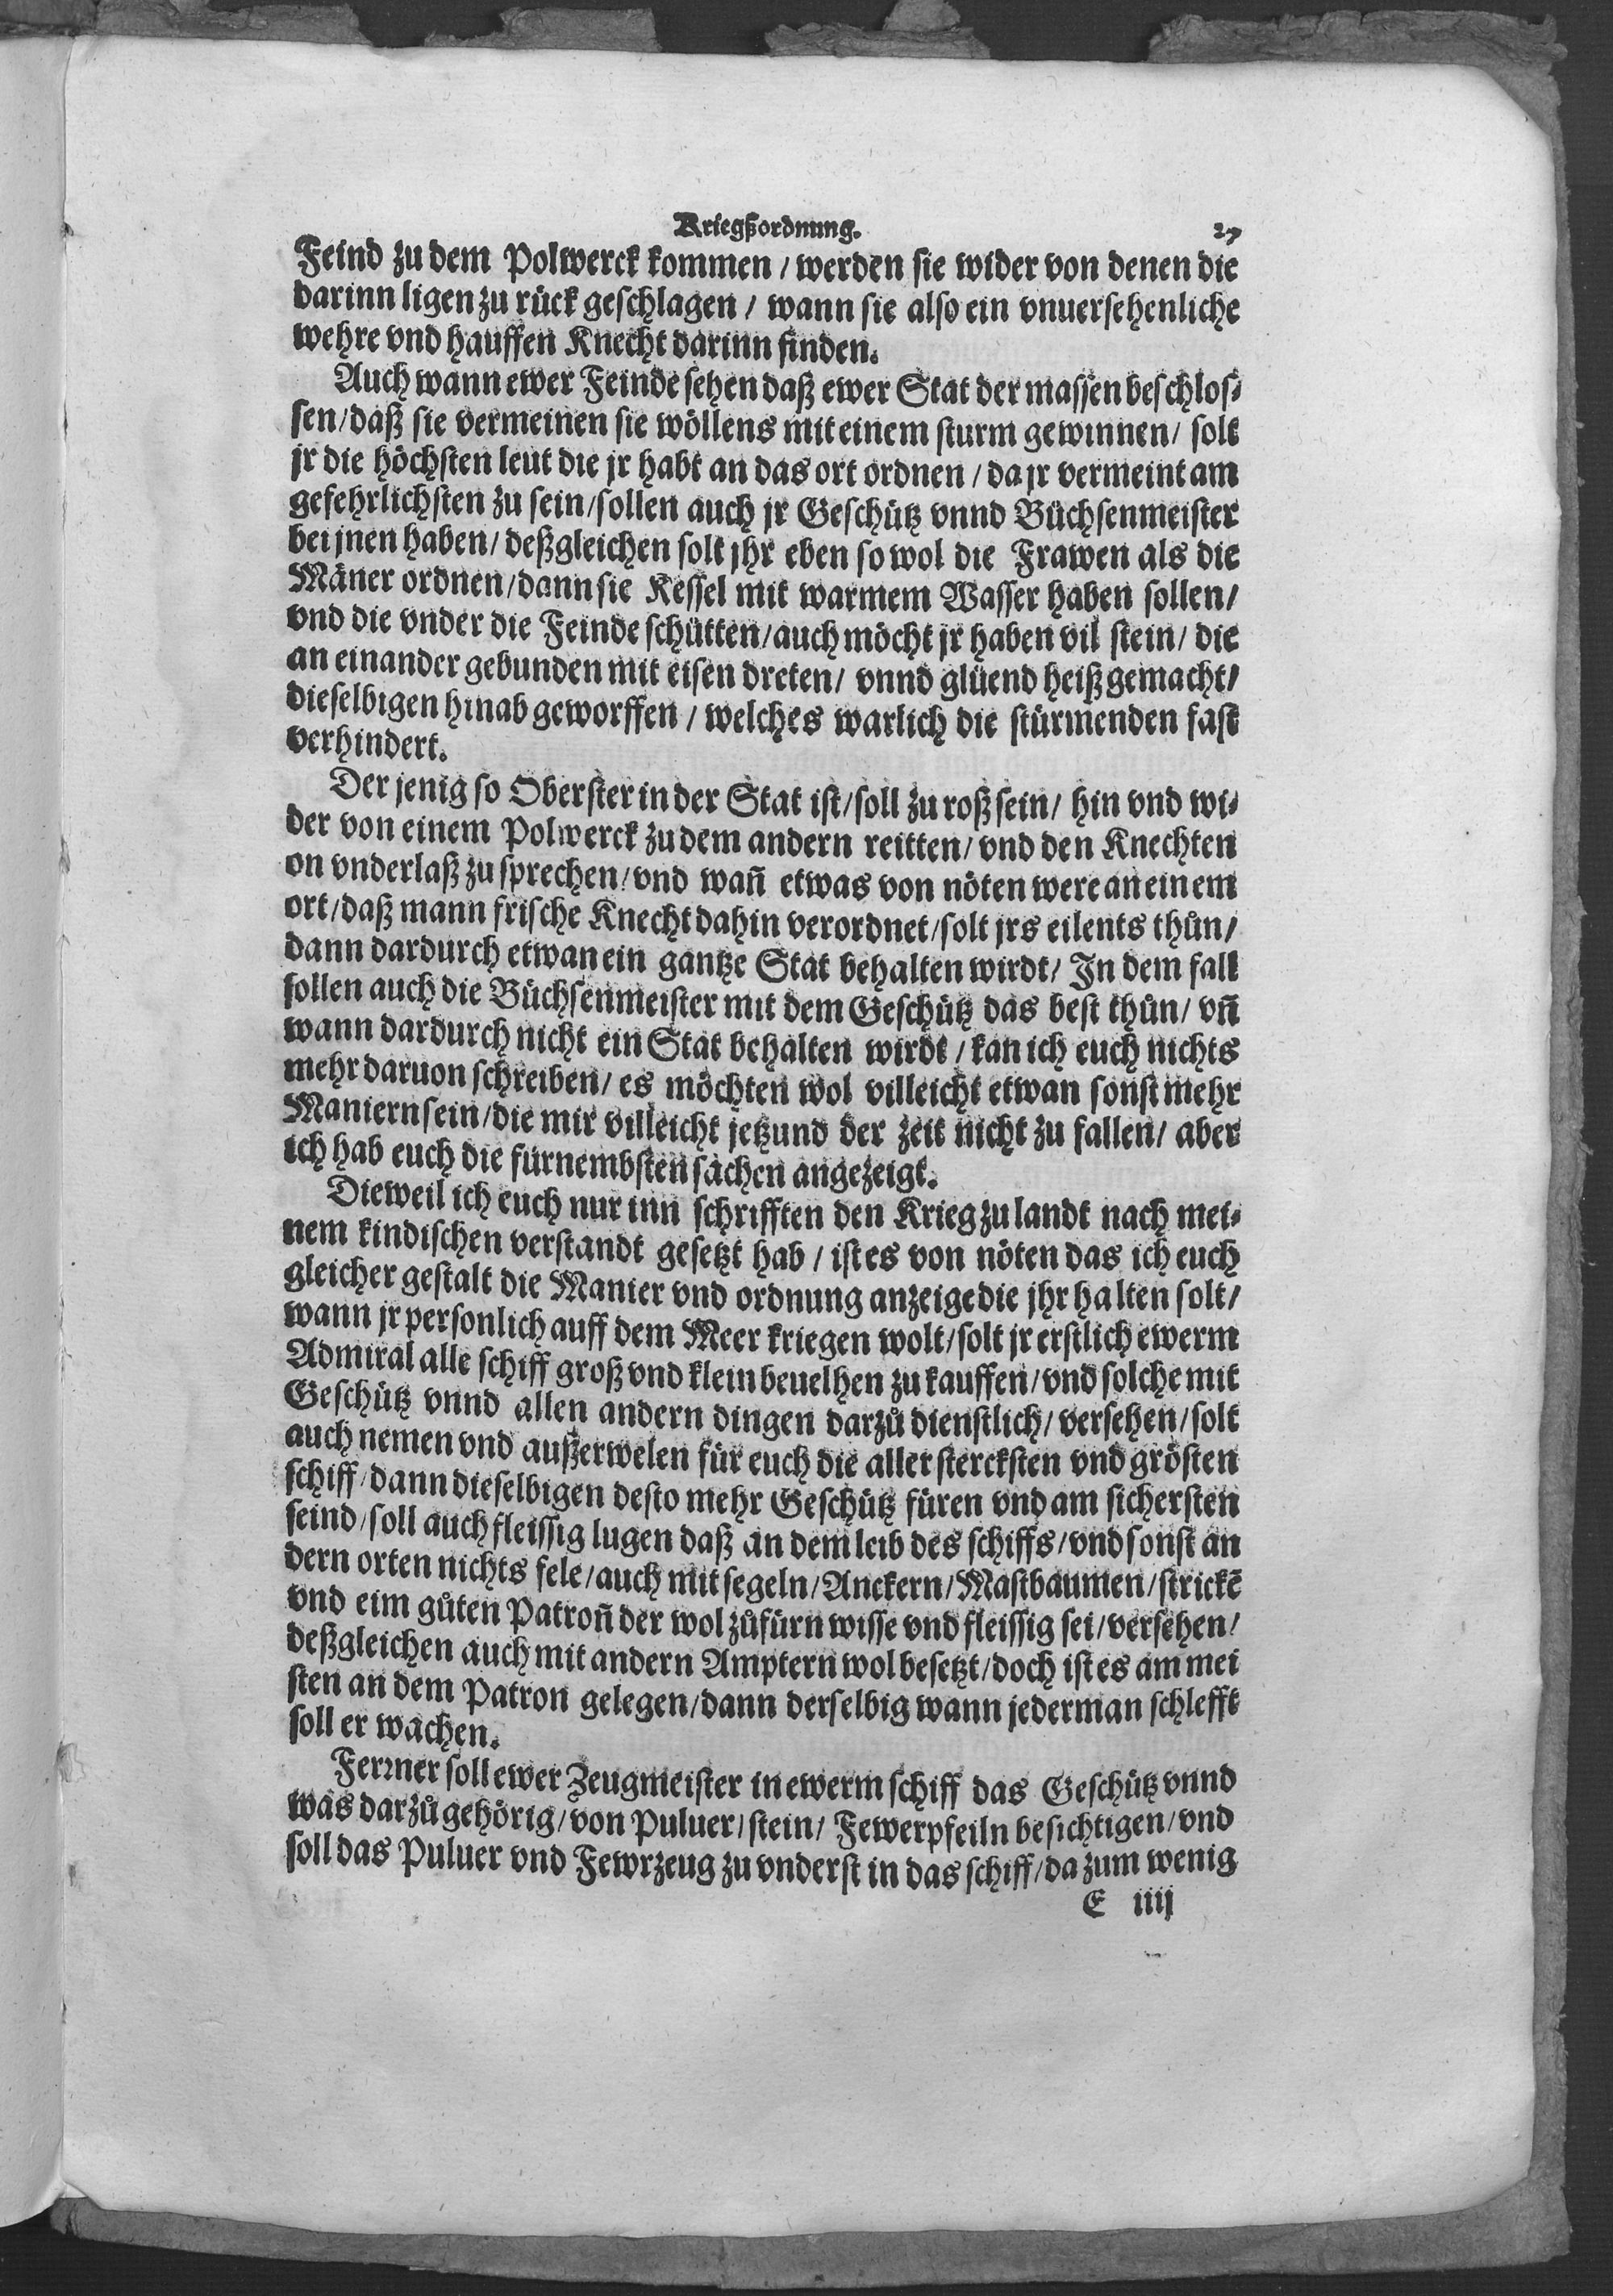 Kriegßordnung.
Feind zu dem Polwerck kommen / werden sie wider von denen die
darinn ligen zu rück geschlagen / wann sie also ein vnuersehenliche
wehre vnd hauffen Knecht darinn finden.
Auch wann ewer Feinde sehen daß ewer Stat der massen beschlos⸗
sen / daß sie vermeinen sie wöllens mit einem sturm gewinnen / solt
jr die höchsten leut die jr habt an das ort ordnen / da jr vermeint am
gefehrlichsten zu sein / sollen auch jr Geschütz vnnd Büchsenmeister
bei jnen haben / deßgleichen solt jhr eben so wol die Frawen als die
Mäner ordnen / dann sie Kessel mit warmem Wasser haben sollen /
vnd die vnder die Feinde schütten / auch möcht jr haben vil stein / die
an einander gebunden mit eisen dreten / vnnd glüend heiß gemacht /
dieselbigen hinab geworffen / welches warlich die stürmenden fast
verhindert.
Der jenig so Oberster in der Stat ist / soll zu roß sein / hin vnd wi⸗
der von einem Polwerck zu dem andern reitten / vnd den Knechten
on vnderlaß zu sprechen / vnd wañ etwas von nöten were an einem
ort / daß mann frische Knecht dahin verordnet / solt jrs eilents thůn /
dann dardurch etwan ein gantze Stat behalten wirdt / In dem fall
sollen auch die Büchsenmeister mit dem Geschütz das best thůn / vñ
wann dardurch nicht ein Stat behalten wirdt / kan ich euch nichts
mehr daruon schreiben / es möchten wol villeicht etwan sonst mehr
Maniern sein / die mir villeicht jetzund der zeit nicht zu fallen / aber
ich hab euch die fürnembsten sachen angezeigt.
Dieweil ich euch nur inn schrifften den Krieg zu landt nach mei⸗
nem kindischen verstandt gesetzt hab / ist es von nöten das ich euch
gleicher gestalt die Manier vnd ordnung anzeige die jhr halten solt /
wann jr personlich auff dem Meer kriegen wolt / solt jr erstlich ewerm
Admiral alle schiff groß vnd klein beuelhen zu kauffen / vnd solche mit
Geschütz vnnd allen andern dingen darzů dienstlich / versehen / solt
auch nemen vnd außerwelen für euch die aller stercksten vnd grösten
schiff / dann dieselbigen desto mehr Geschütz füren vnd am sichersten
seind / soll auch fleissig lugen daß an dem leib des schiffs / vnd sonst an
dern orten nichts fele / auch mit segeln / Anckern / Mastbaumen / strickē
vnd eim gůten Patroñ der wol zůfürn wisse vnd fleissig sei / versehen /
deßgleichen auch mit andern Amptern wol besetzt / doch ist es am mei
sten an dem Patron gelegen / dann derselbig wann jederman schlefft
soll er wachen.
Ferꝛner soll ewer Zeugmeister in ewerm schiff das Geschütz vnnd
was darzů gehörig / von Puluer / stein / Fewerpfeiln besichtigen / vnd
soll das Puluer vnd Fewrzeug zu vnderst in das schiff / da zum wenig
E iiij